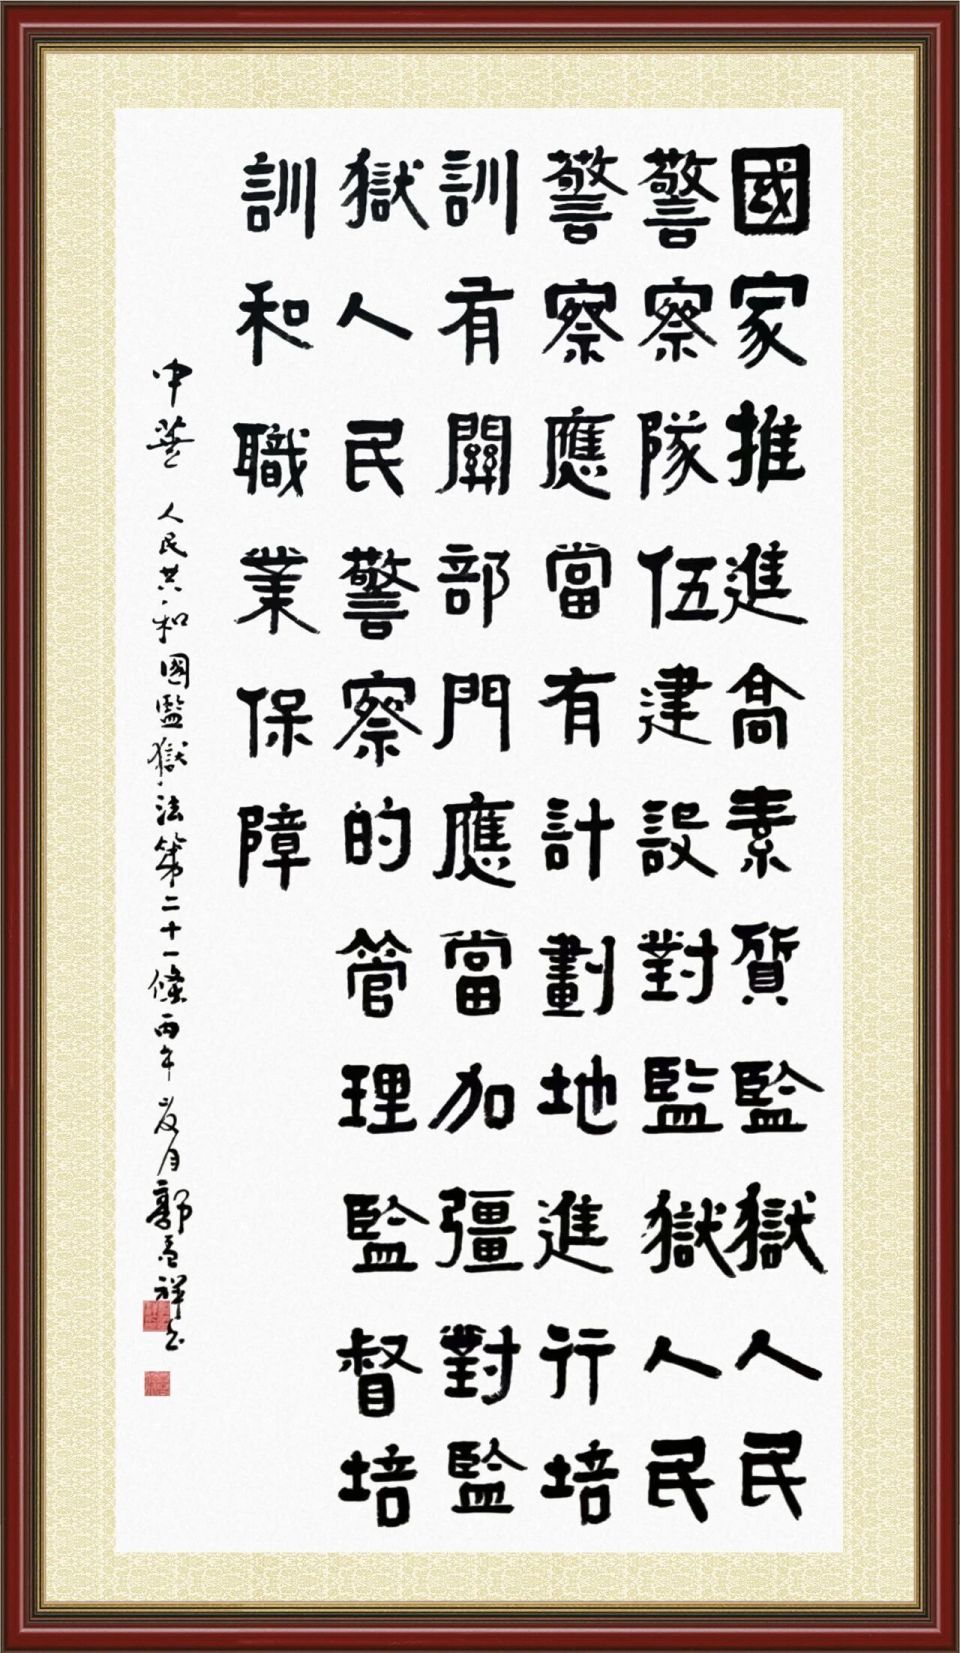 國家推進高素質監獄人民
警察隊伍建設對監獄人民
警察應當有計劃地進行培
訓有關部門應當加彊對監
獄人民警察的管理監督培
訓和職業保障
中華人民共和國監獄法第二十一條丙午歲月郭孟祥书